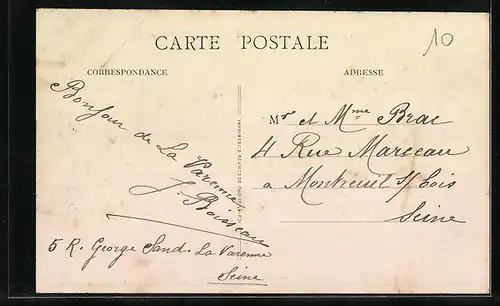 CARTE POSTALE
10
CORRESPONDANCE
ADRESSE
Bonjour de La Varenne
J. Boisseau
5 R. George Sand. La Varenne
Seine
Mr et Mme Brac
4 Rue Marceau
a Montreuil s/ bois
Seine